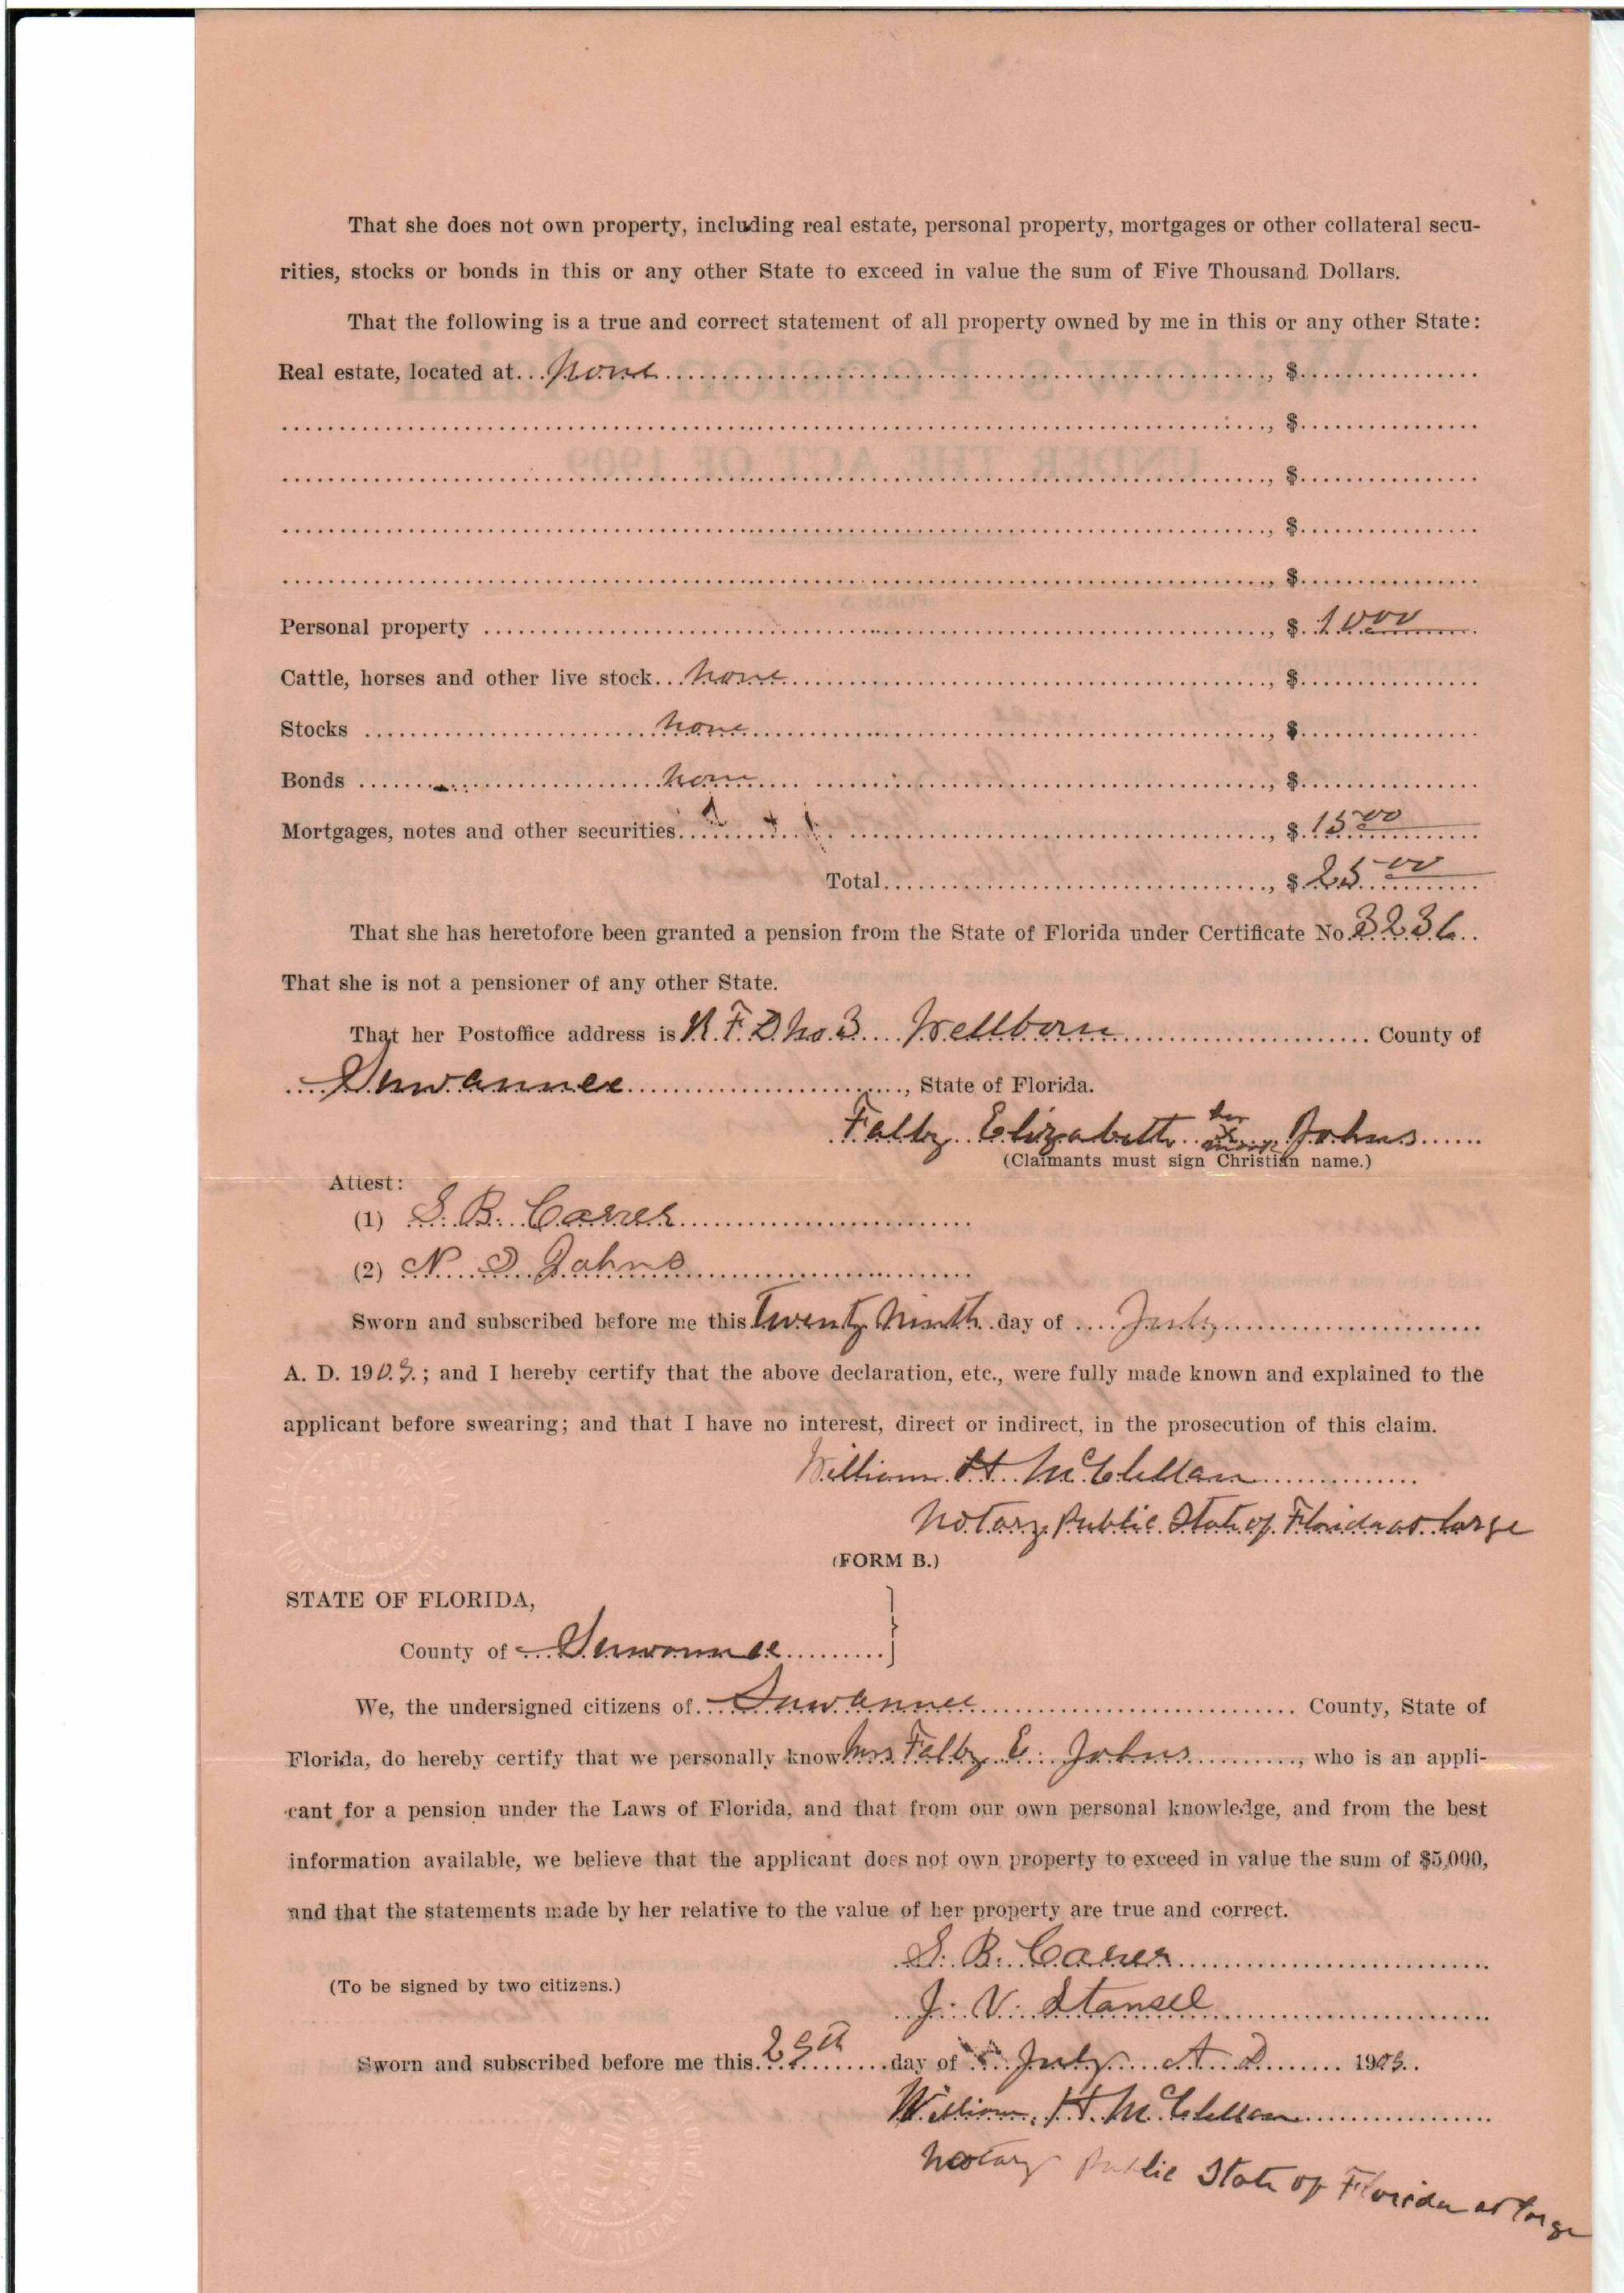 That she does not own property, including real estate, personal property, mortgages or other collateral secu-
rities, stocks or bonds in this or any other State to exceed in value the sum of Five Thousand Dollars.
That the following is a true and correct statement of all property owned by me in this or any other State:
Real estate, located at None, $
, $
, $
, $
, $
Personal property, $ 10 00
Cattle, horses and other live stock none, $
Stocks none, $
Bonds none, $
Mortgages, notes and other securities, $ 15 00
Total, $ 25 00
That she has heretofore been granted a pension from the State of Florida under Certificate No. 3236
That she is not a pensioner of any other State.
That her Postoffice address is R.F.D No. 3 Wellborn County of
Suwannee, State of Florida.
Falby Elizabeth her x mark Johns
(Claimants must sign Christian name.)
Attest:
(1) S. B. Carver
(2) N. D. Johns
Sworn and subscribed before me this Twenty Ninth day of July
A. D. 1909.; and I hereby certify that the above declaration, etc., were fully made known and explained to the
applicant before swearing; and that I have no interest, direct or indirect, in the prosecution of this claim.
William H. McClellan
Notary Public State of Florida at Large
(FORM B.)
STATE OF FLORIDA,
County of Suwannee
We, the undersigned citizens of Suwannee County, State of
Florida, do hereby certify that we personally know Mrs Falby E. Johns, who is an appli-
cant for a pension under the Laws of Florida, and that from our own personal knowledge, and from the best
information available, we believe that the applicant does not own property to exceed in value the sum of $5,000,
and that the statements made by her relative to the value of her property are true and correct.
S. B. Carver
(To be signed by two citizens.)
J. V. Stansel
Sworn and subscribed before me this 29th day of July A D 1909.
William H. McClellan
Notary Public State of Florida at Large